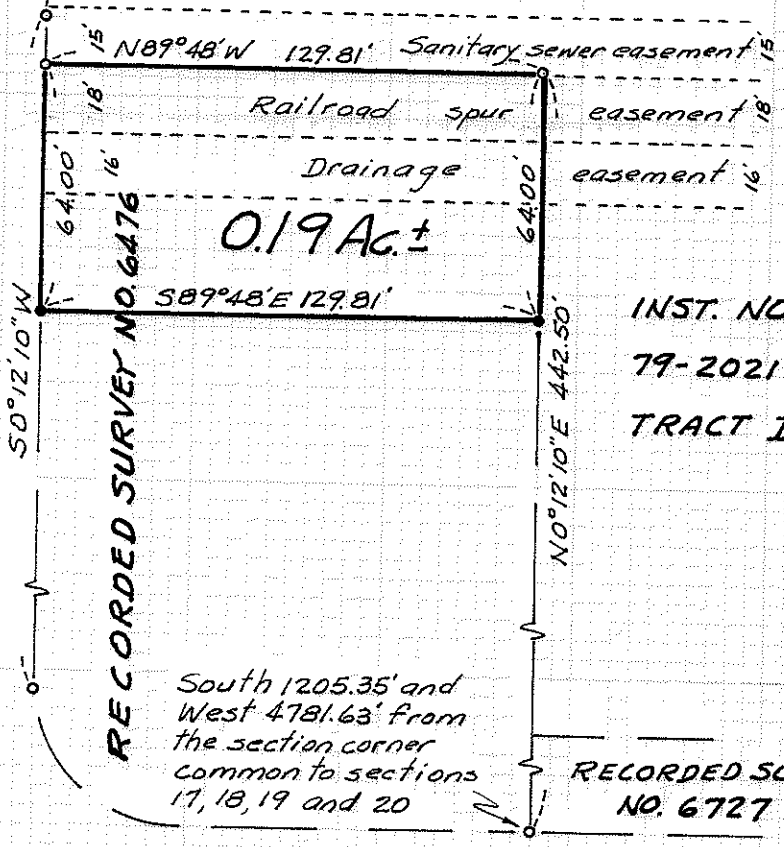 15' N89°48'W 129.81' Sanitary sewer easement 15'
18' Railroad spur easement 18'
16' Drainage easement 16'
64.00' 64.00'
0.19 Ac. ±
S89°48'E 129.81'
S0°12'10"W
RECORDED SURVEY NO. 6476
N0°12'10"E 442.50'
INST. NO
79-2021
TRACT I
South 1205.35' and
West 4781.63' from
the section corner
common to sections
17, 18, 19 and 20
RECORDED SU
NO. 6727